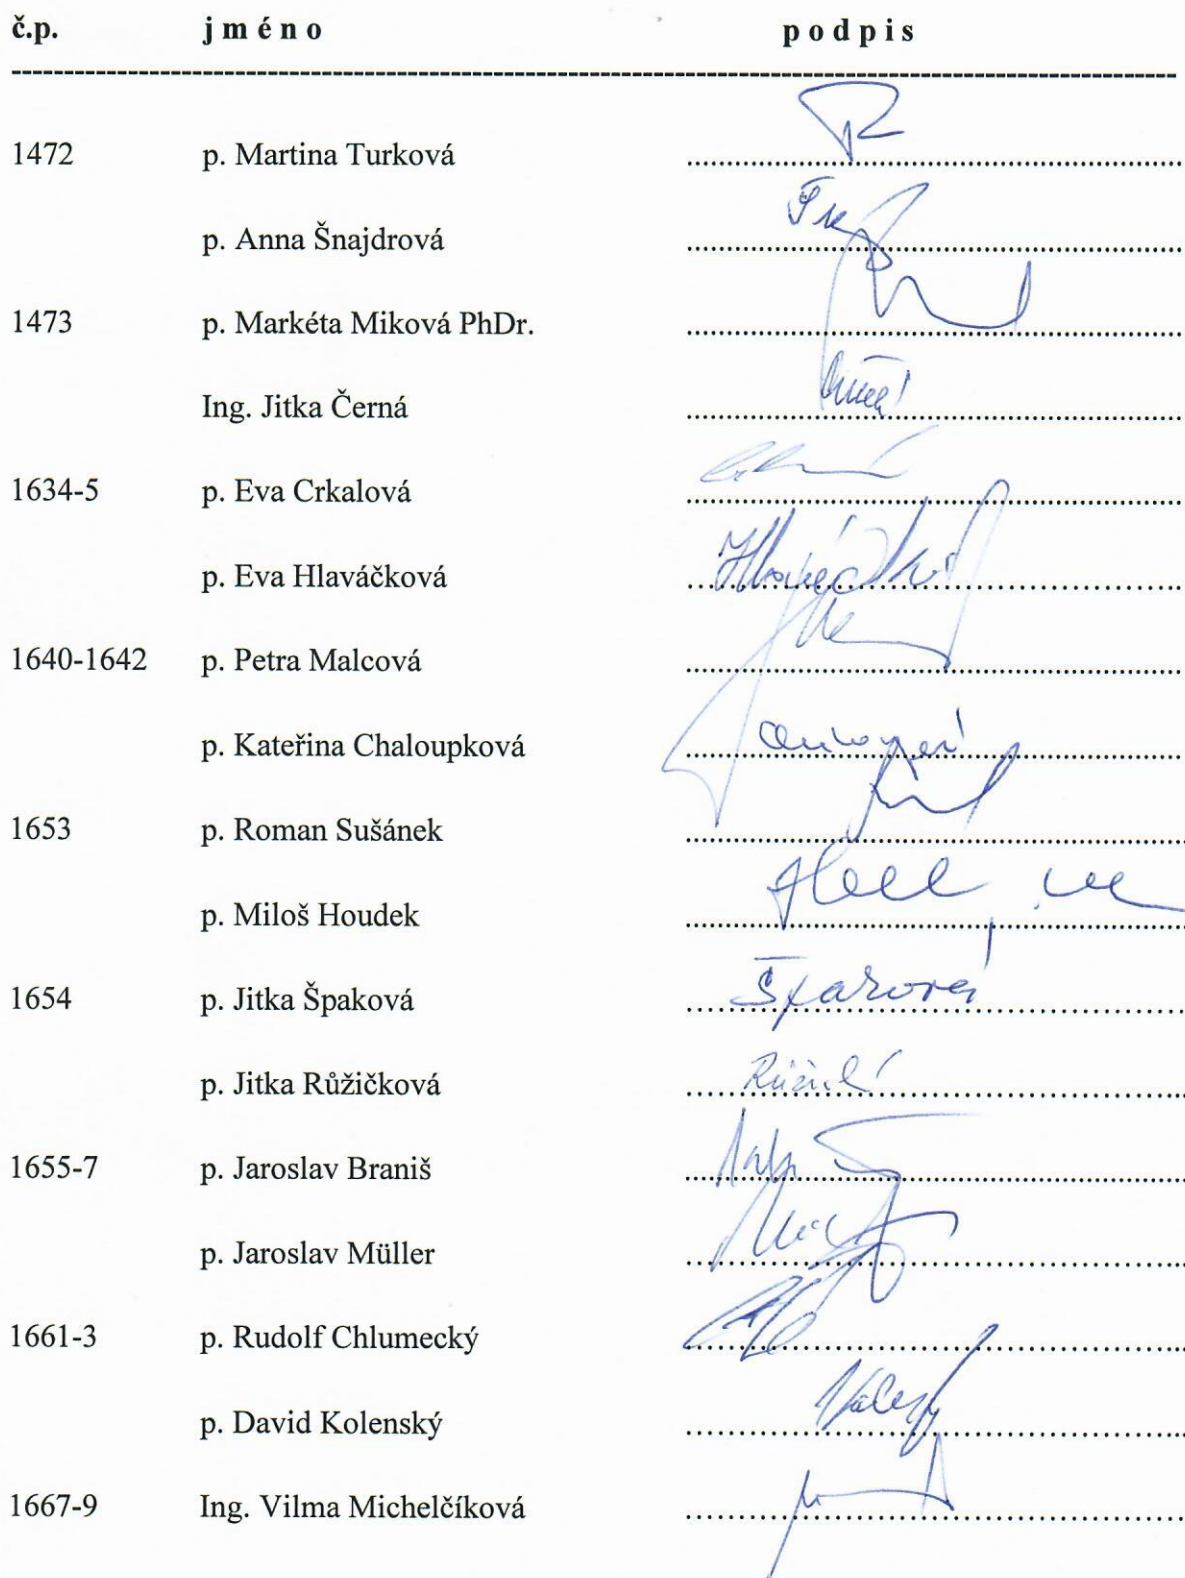 č.p. jméno podpis
1472 p. Martina Turková
p. Anna Šnajdrová
1473 p. Markéta Miková PhDr.
Ing. Jitka Černá
1634-5 p. Eva Crkalová
p. Eva Hlaváčková Hlaváčková
1640-1642 p. Petra Malcová
p. Kateřina Chaloupková
1653 p. Roman Sušánek
p. Miloš Houdek
1654 p. Jitka Špaková Špaková
p. Jitka Růžičková
1655-7 p. Jaroslav Braniš
p. Jaroslav Müller
1661-3 p. Rudolf Chlumecký
p. David Kolenský
1667-9 Ing. Vilma Michelčíková